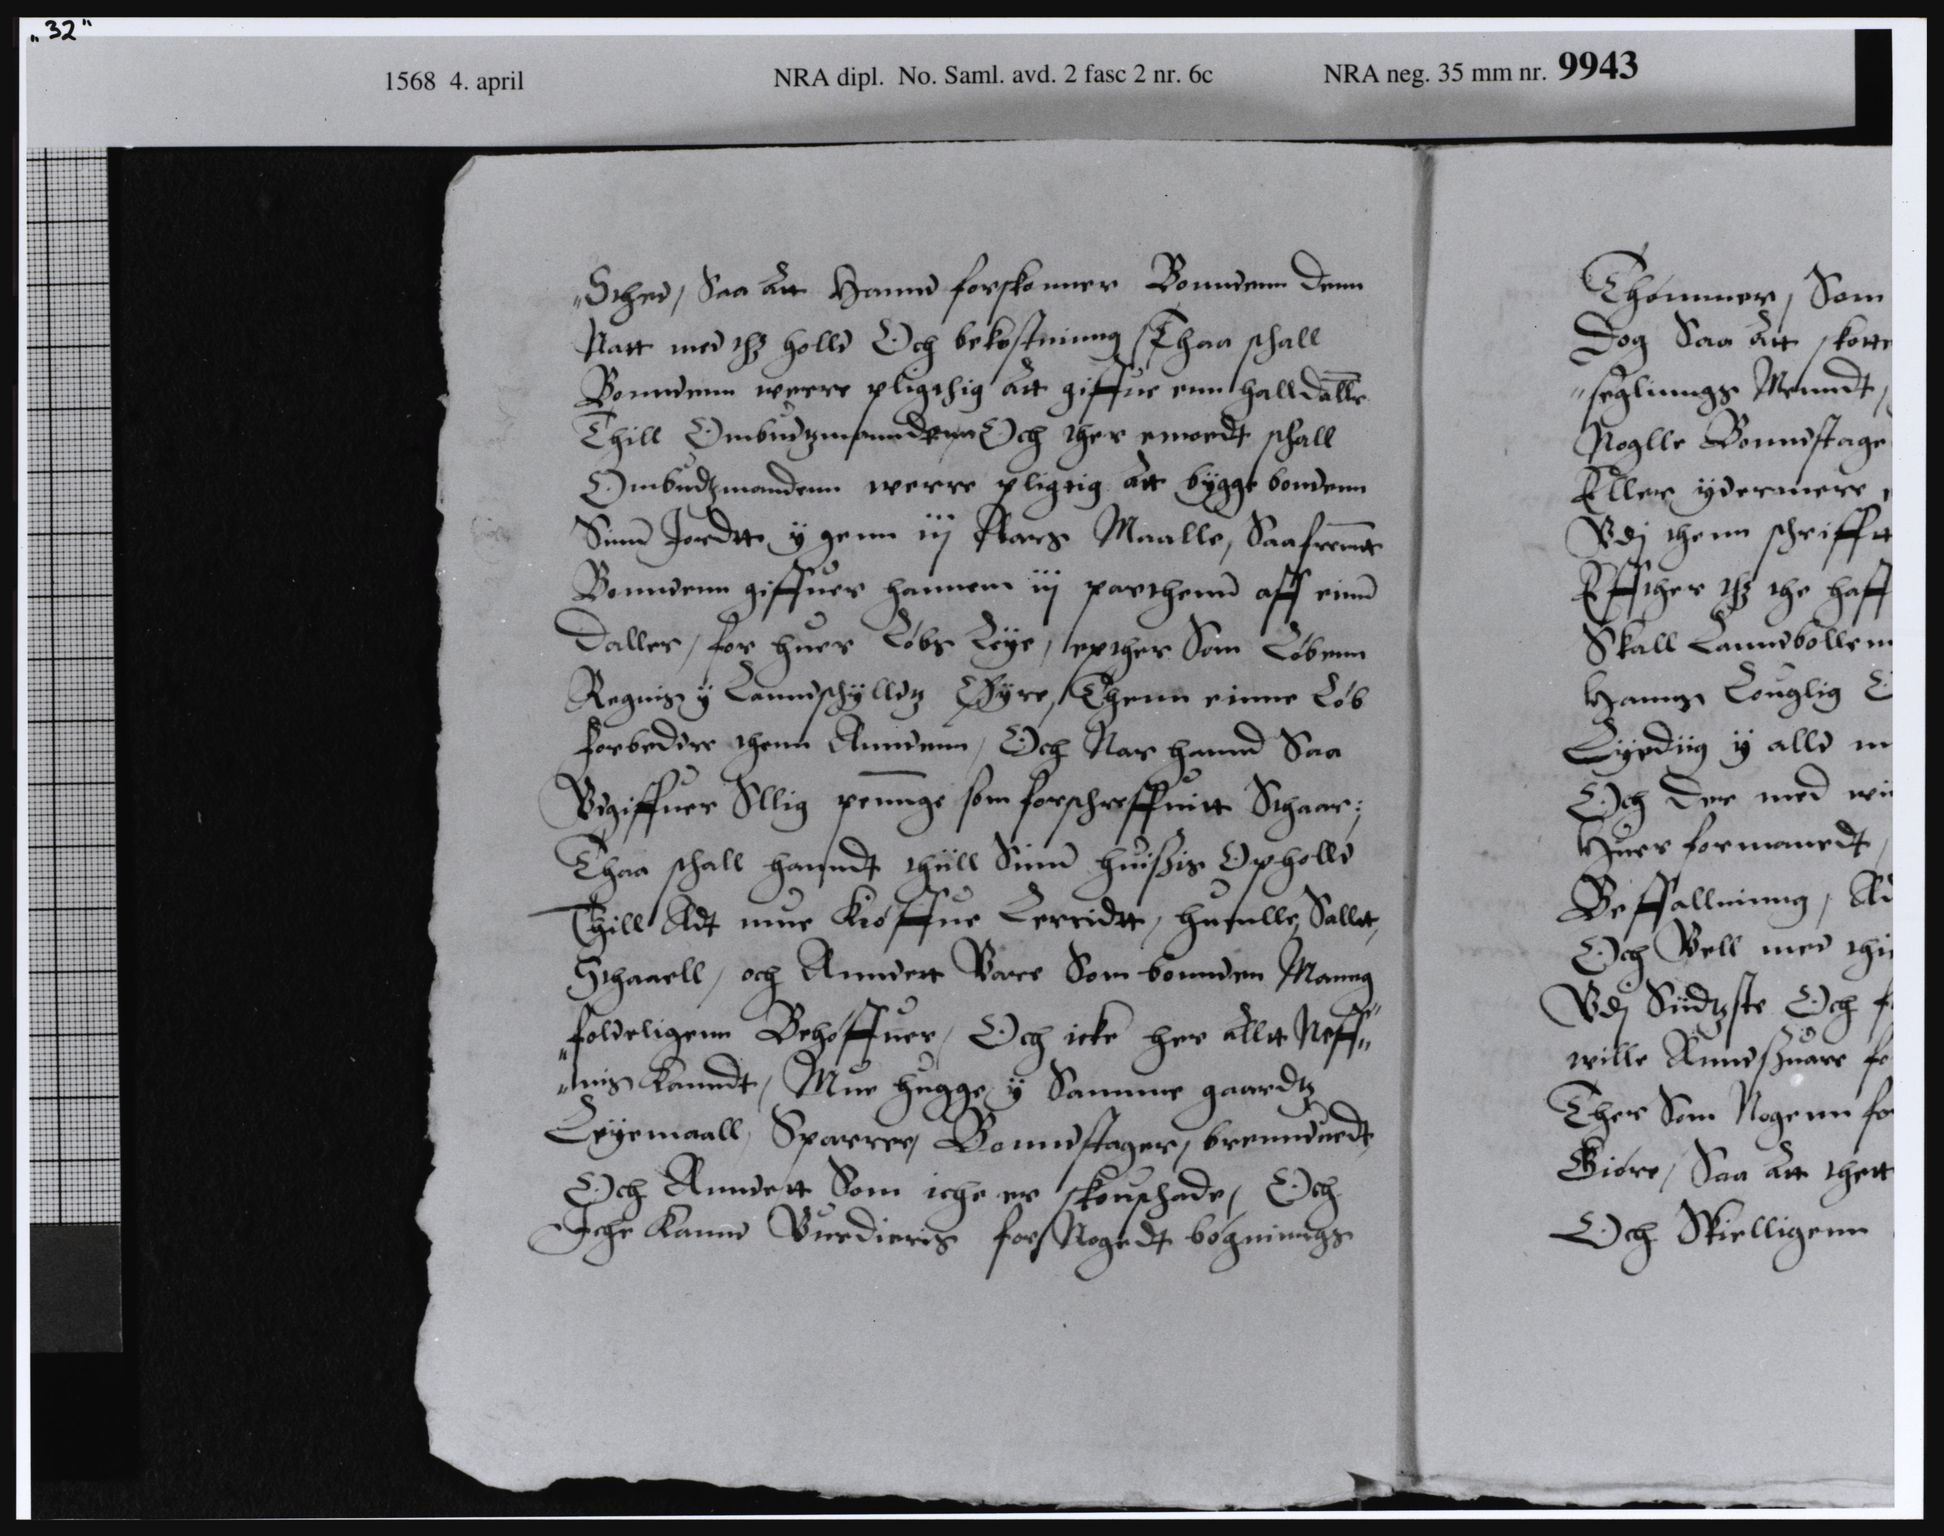 „32"
1568 4. april NRA dipl. No. Saml. avd. 2 fasc 2 nr. 6c NRA neg. 35 mm nr. 9943
Sthed, Saa att Hannd forskonner Bonndenn denn
Natt med thz holld Och bekostninng Thaa schall
Bonndenn werre pligthig att giffue enn hall daller
Thill Ombudzmanndenn Och ther emodt schall
Ombudzmandenn werre pligtig att bÿgge bondenn
Sinn Jordtt ÿ genn iij Aars Maalle, Saafremtt
Bonndenn giffuer hannem iij parthenn aff einn
Daller, for huer Løbs Leÿe, epther Som Løbenn
Regnis ÿ Lanndschÿlldz Øÿre, Thenn einne Løb
forbedre thenn Anndenn, Och Nar hannd Saa
Vdgiffuer Sllig penninge som forschreffuitt Sthaar;
Thaa schall hanndt thiill Sinn huisßis Opholld
Thill Adt mue Kiøffue Lerridtt, humlle, Salltt,
Sthaaell, och Anndett Vare Som bonnden Manng
„foldeligenn Behøffuer, Och icke her alltt Neff„
„nis kanndt, Mue hugge ÿ Samme gaardtz
Leÿemaall, Sparrer, Bonndstager, brenneuedt
Och Anndett Som iche er skouschade, Och
Iche Kannd Vurdieris for Nogedt bøgninngs
Thømmer, Som
Dog Saa att skott
„seglinngs Manndt,
Noglle Bonndstage
Eller ÿdermere
Vdj thenn schrifftt
Effther thz the haff
Skall Lanndbollenn
Hanns Louglig
Lÿediig ÿ alld m
Och der med wii
Huer formanedt,
Beffallninng, Ad
Och Vell med thi
Vdj Siidzste Och f
wille Anndsuare fo
Ther Som Nogenn for
Giøre, Saa att thett
Och Skielligenn